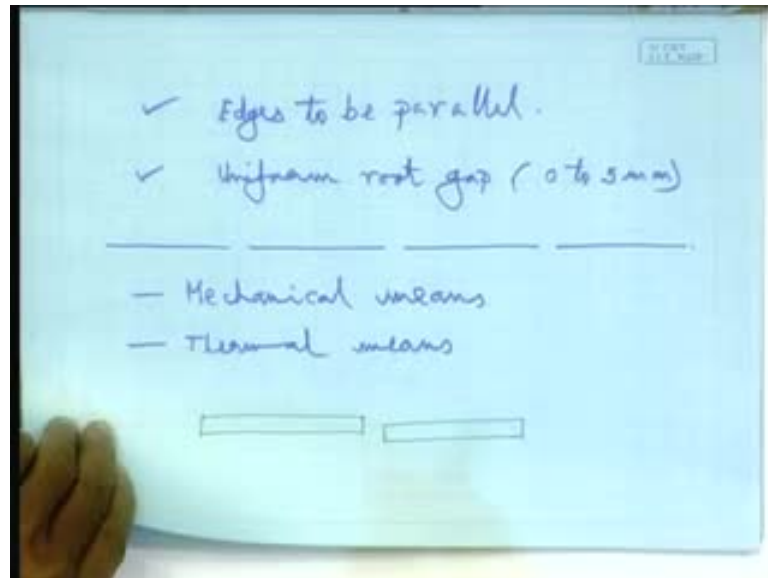 ✓ Edges to be parallel.
✓ Uniform root gap ( 0 to 3 mm)
— Mechanical means
— Thermal means